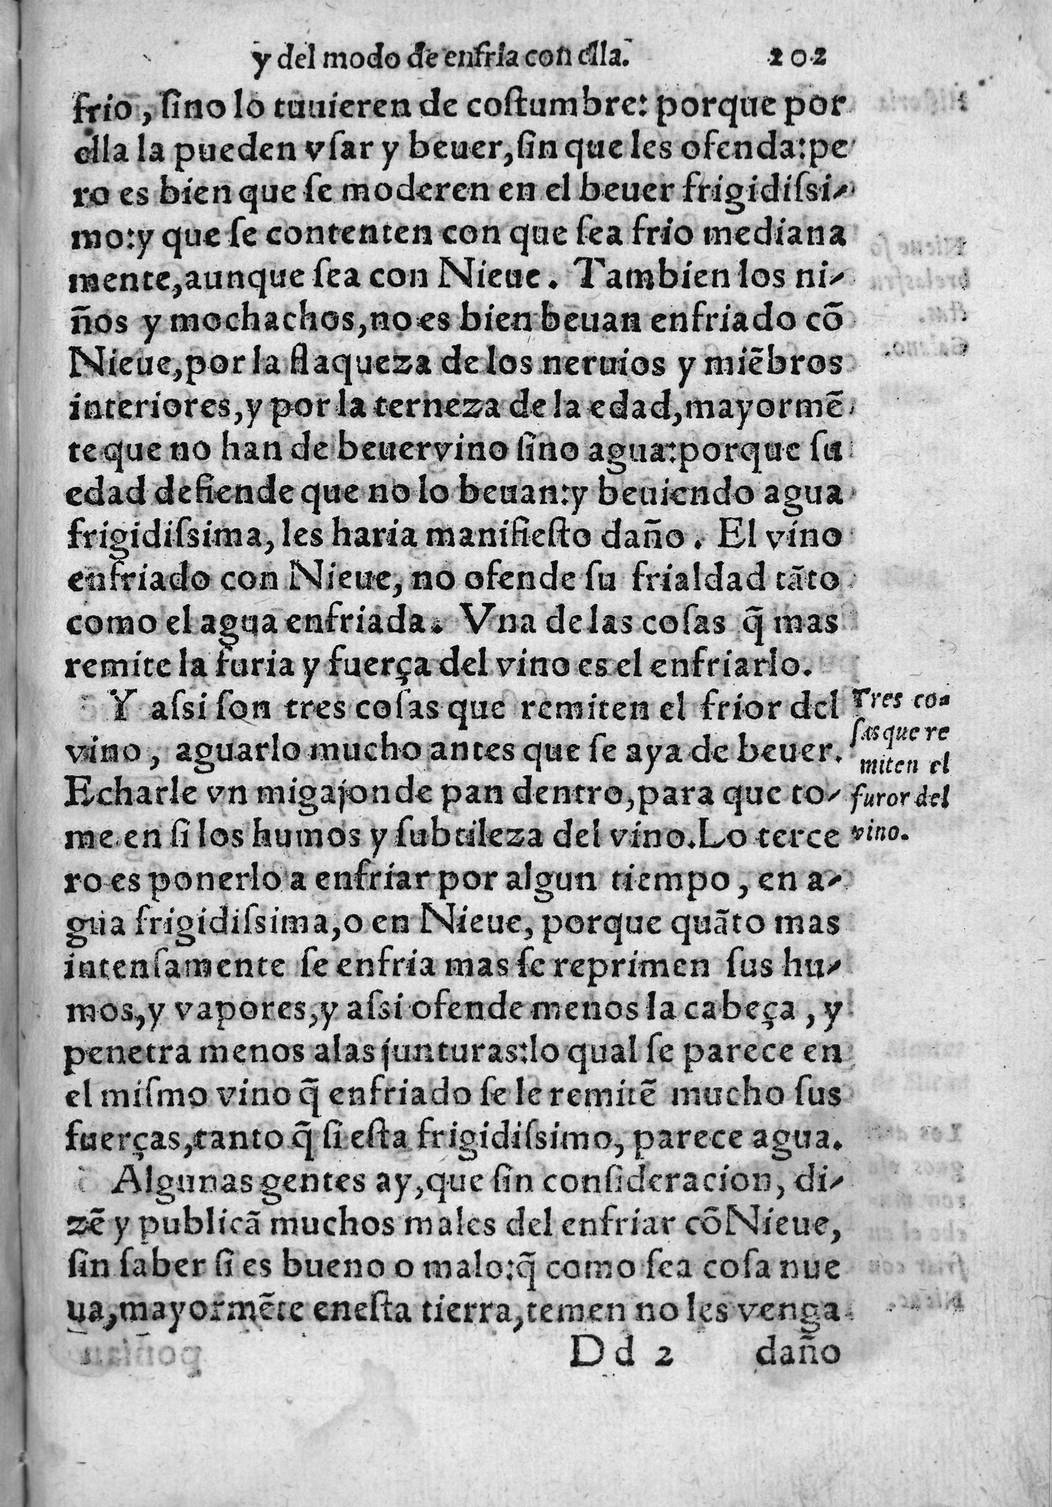 y del modo de enfria con ella. 202
frio, ſino lo tuuieren de coſtumbre: porque por
ella la pueden vſar y beuer, ſin que les ofenda: pe
ro es bien que ſe moderen en el beuer frigidiſsi-
mo: y que ſe contenten con que ſea frio mediana
mente, aunque ſea con Nieue. Tambien los ni-
ños y mochachos, no es bien beuan enfriado cõ
Nieue, por la flaqueza de los neruios y miẽbros
interiores, y por la terneza de la edad, mayormẽ
te que no han de beuer vino ſino agua: porque ſu
edad defiende que no lo beuan: y beuiendo agua
frigidiſsima, les haria manifieſto daño. El vino
enfriado con Nieue, no ofende ſu frialdad tãto
como el agua enfriada. Vna de las coſas q̃ mas
remite la furia y fuerça del vino es el enfriarlo.
Y aſsi ſon tres coſas que remiten el frior del
vino, aguarlo mucho antes que ſe aya de beuer.
Echarle vn migajon de pan dentro, para que to-
me en ſi los humos y ſubtileza del vino. Lo terce
ro es ponerlo a enfriar por algun tiempo, en a-
gua frigidiſsima, o en Nieue, porque quãto mas
intenſamente ſe enfria mas ſe reprimen ſus hu-
mos, y vapores, y aſsi ofende menos la cabeça, y
penetra menos a las junturas: lo qual ſe parece en
el miſmo vino q̃ enfriado ſe le remitẽ mucho ſus
fuerças, tanto q̃ ſi eſta frigidiſsimo, parece agua.
Algunas gentes ay, que ſin conſideracion, di-
zẽ y publicã muchos males del enfriar cõ Nieue,
ſin ſaber ſi es bueno o malo: q̃ como ſea coſa nue
ua, mayormẽte en eſta tierra, temen no les venga
Dd 2 daño
Tres co-
ſas que re
miten el
furor del
vino.